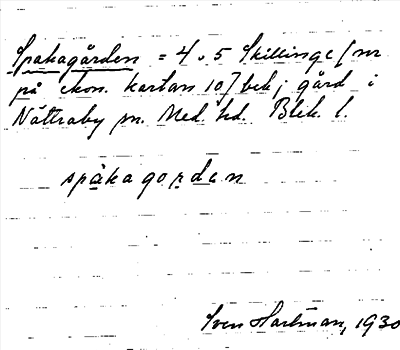 Spakagården = 4 o 5 Skillinge [nr
på ekon. kartan 10] beb; gård i
Nättraby sn. Med. hd. Blek. l.
spakagorden
Sven Hartman, 1930